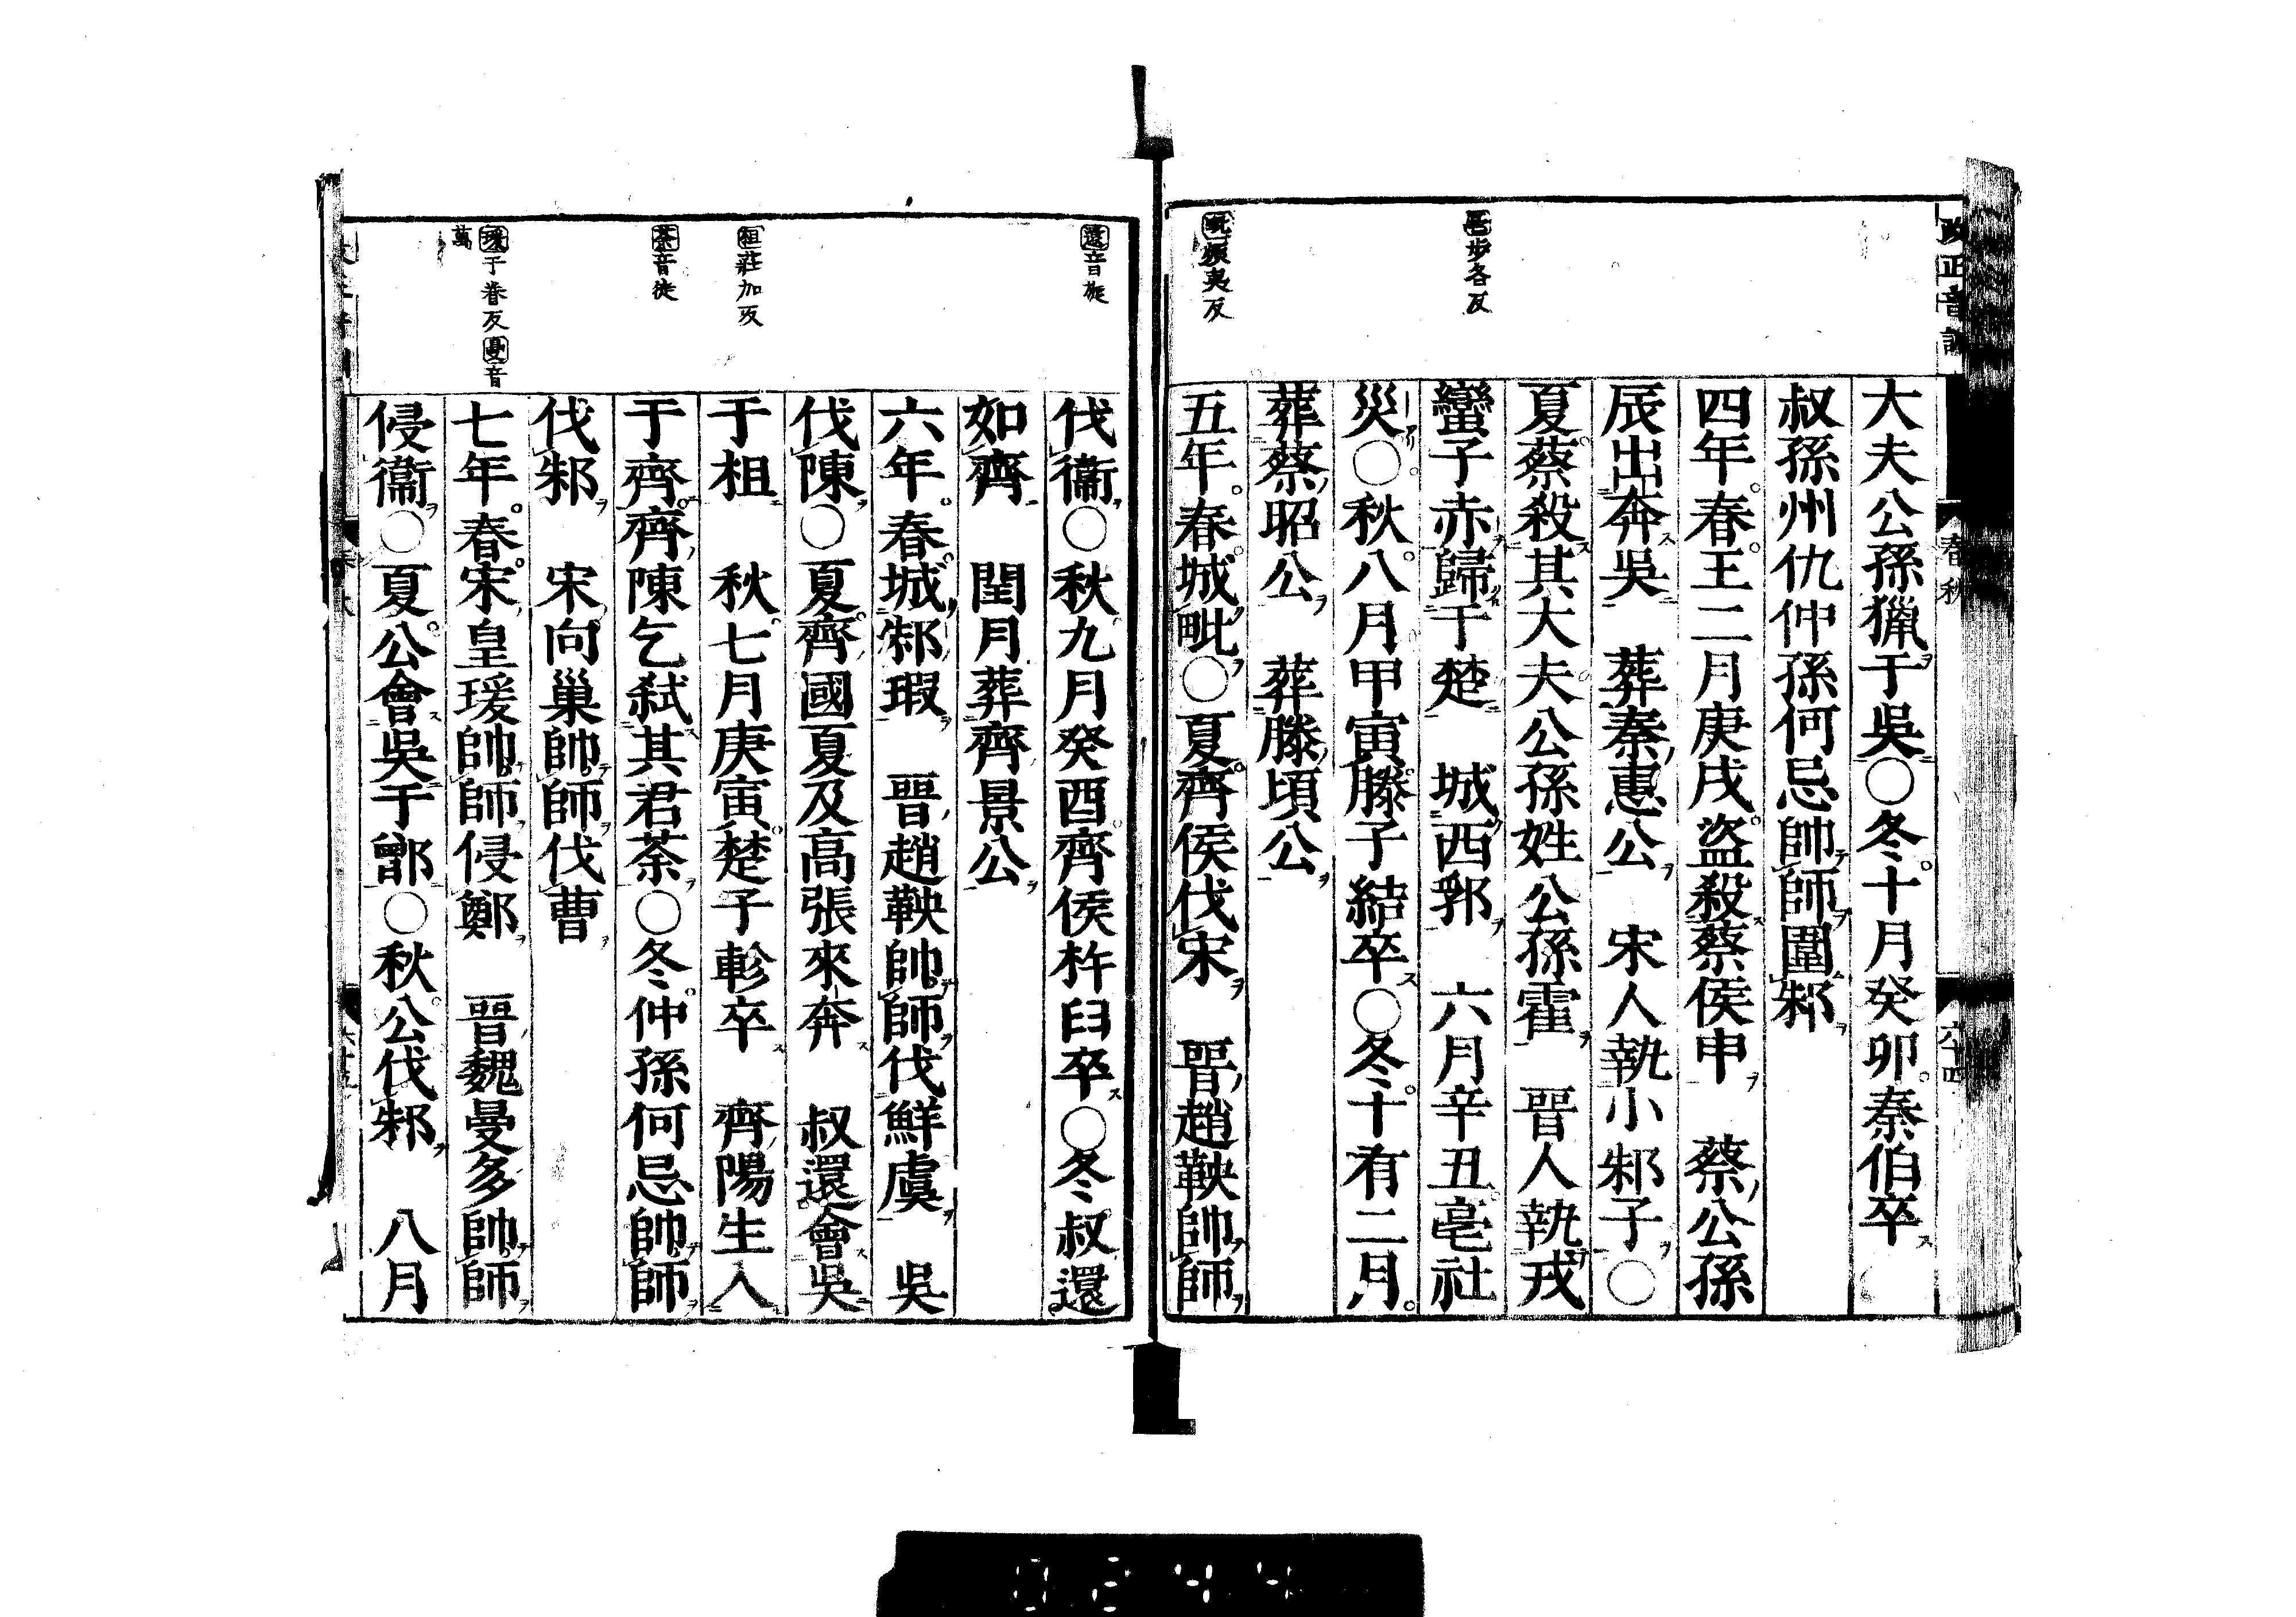 大夫公孫獵于吳○冬十月癸卯秦伯卒
叔孫州仇仲孫何忌帥師圍邾
四年春王二月庚戌盜殺蔡侯申　蔡公孫
辰出奔吳　葬秦惠公　宋人執小邾子○
夏蔡殺其大夫公孫姓公孫霍　晉人執戎
蠻子赤歸于楚　城西郛　六月辛丑亳社
災○秋八月甲寅滕子結卒○冬十有二月
葬蔡昭公　葬滕頃公
五年春城毗○夏齊侯伐宋　晉趙鞅帥師
亳步各反
毗頻夷反
春秋
六十四
伐衞○秋九月癸酉齊侯杵臼卒○冬叔還
如齊　閏月葬齊景公
六年春城邾瑕　晉趙鞅帥師伐鮮虞　吳
伐陳○夏齊國夏及高張來奔　叔還會吳
于柤　秋七月庚寅楚子軫卒　齊陽生入
于齊齊陳乞弑其君荼○冬仲孫何忌帥師
伐邾　宋向巢帥師伐曹
七年春宋皇瑗帥師侵鄭　晉魏曼多帥師
侵衞○夏公會吳于鄫○秋公伐邾　八月
還音旋
柤莊加反
荼音徒
瑗于眷反曼音
萬
0244